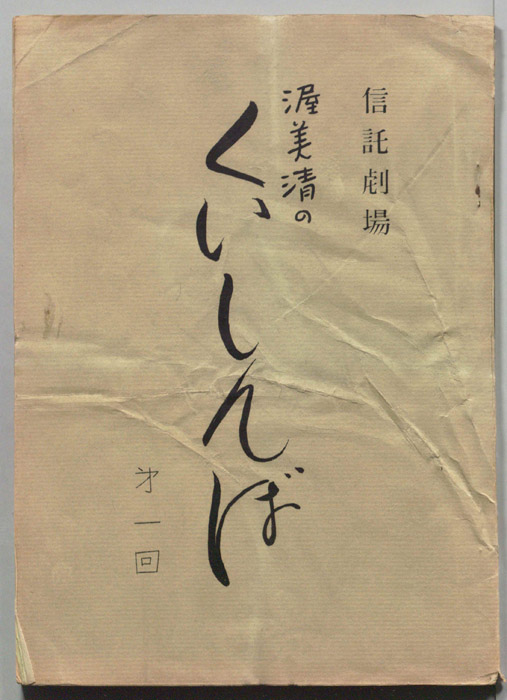 信託劇場
渥美清の
くいしんば
才一回